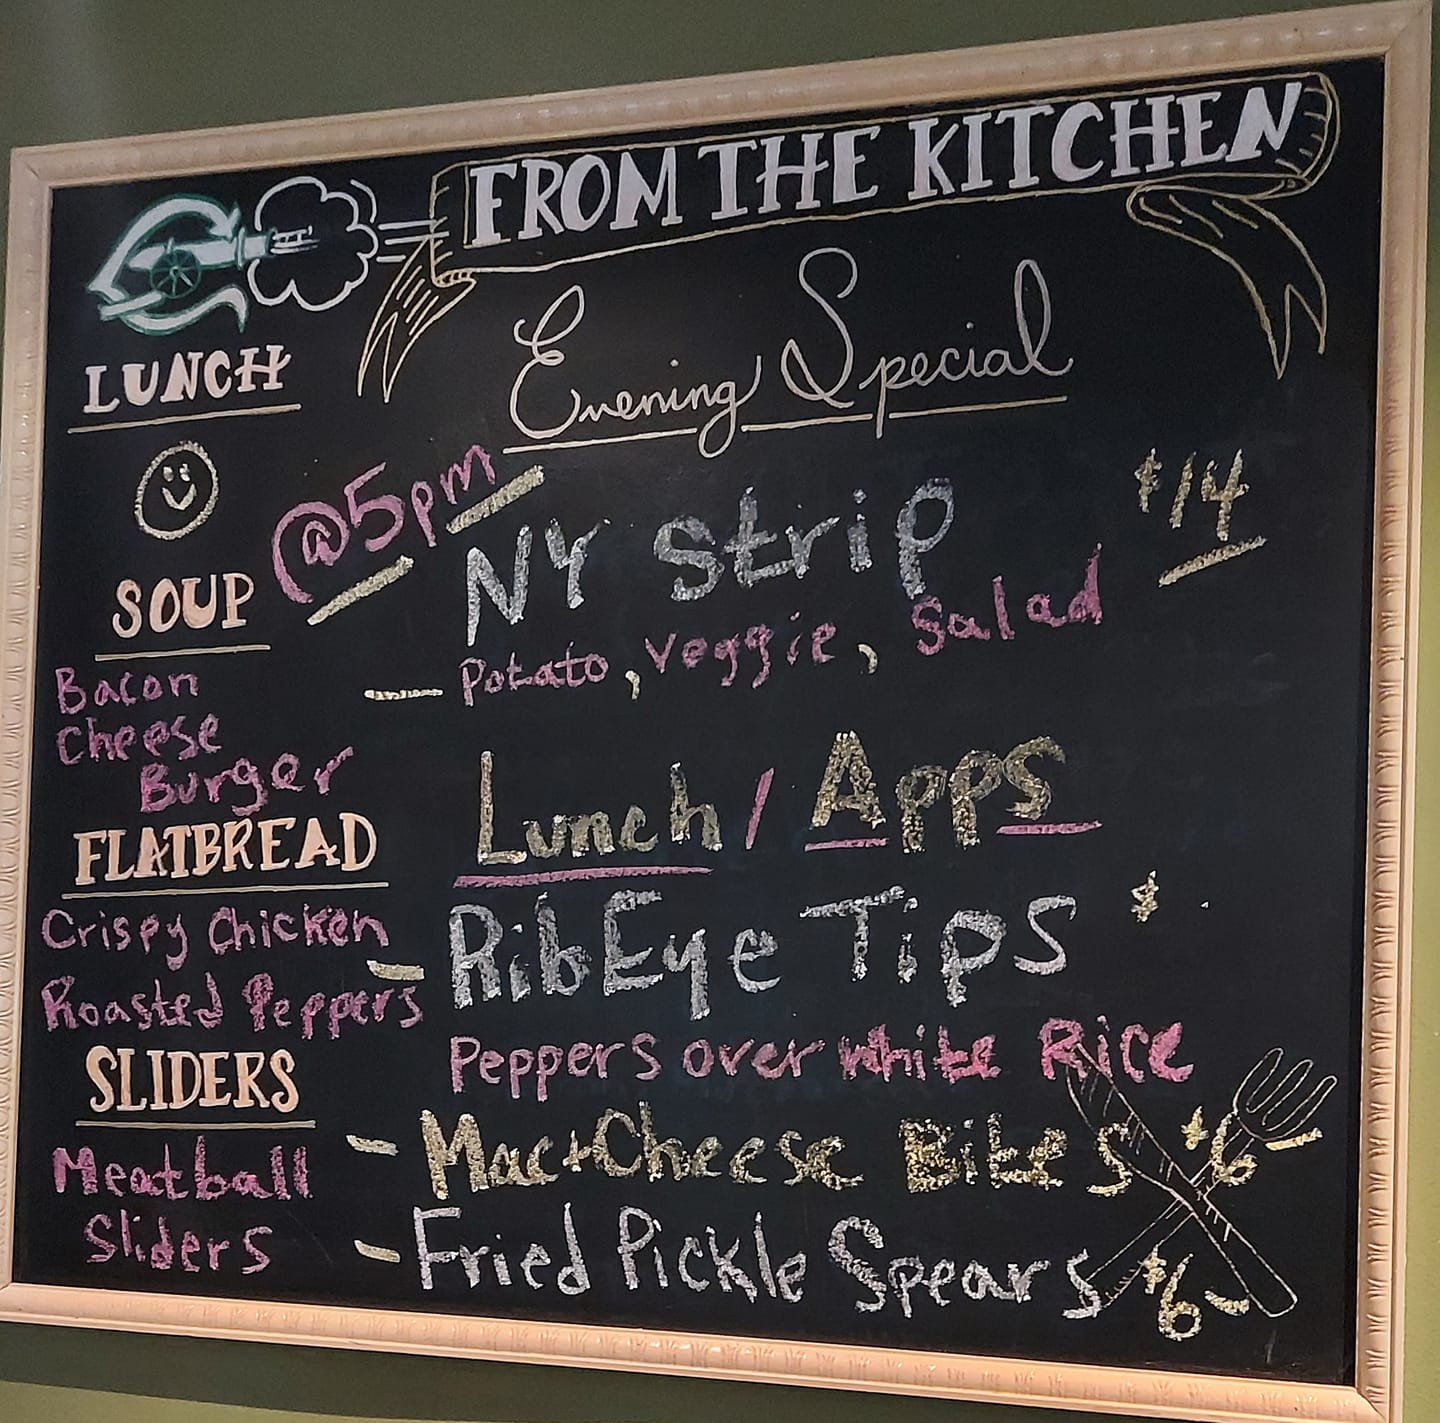 FROM THE KITCHEN
LUNCH
SOUP
Bacon
Cheese
Burger
FLATBREAD
Crispy Chicken
Roasted Peppers
SLIDERS
Meatball
Sliders
Evening Special
@5pm
NY Strip $14
- Potato, Veggie, Salad
Lunch / Apps
- RibEye Tips $
Peppers over White Rice
- Mac+Cheese Bites $6-
- Fried Pickle Spears $6-